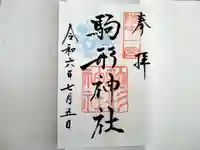 奉拝
駒形神社
令和六年七月五日